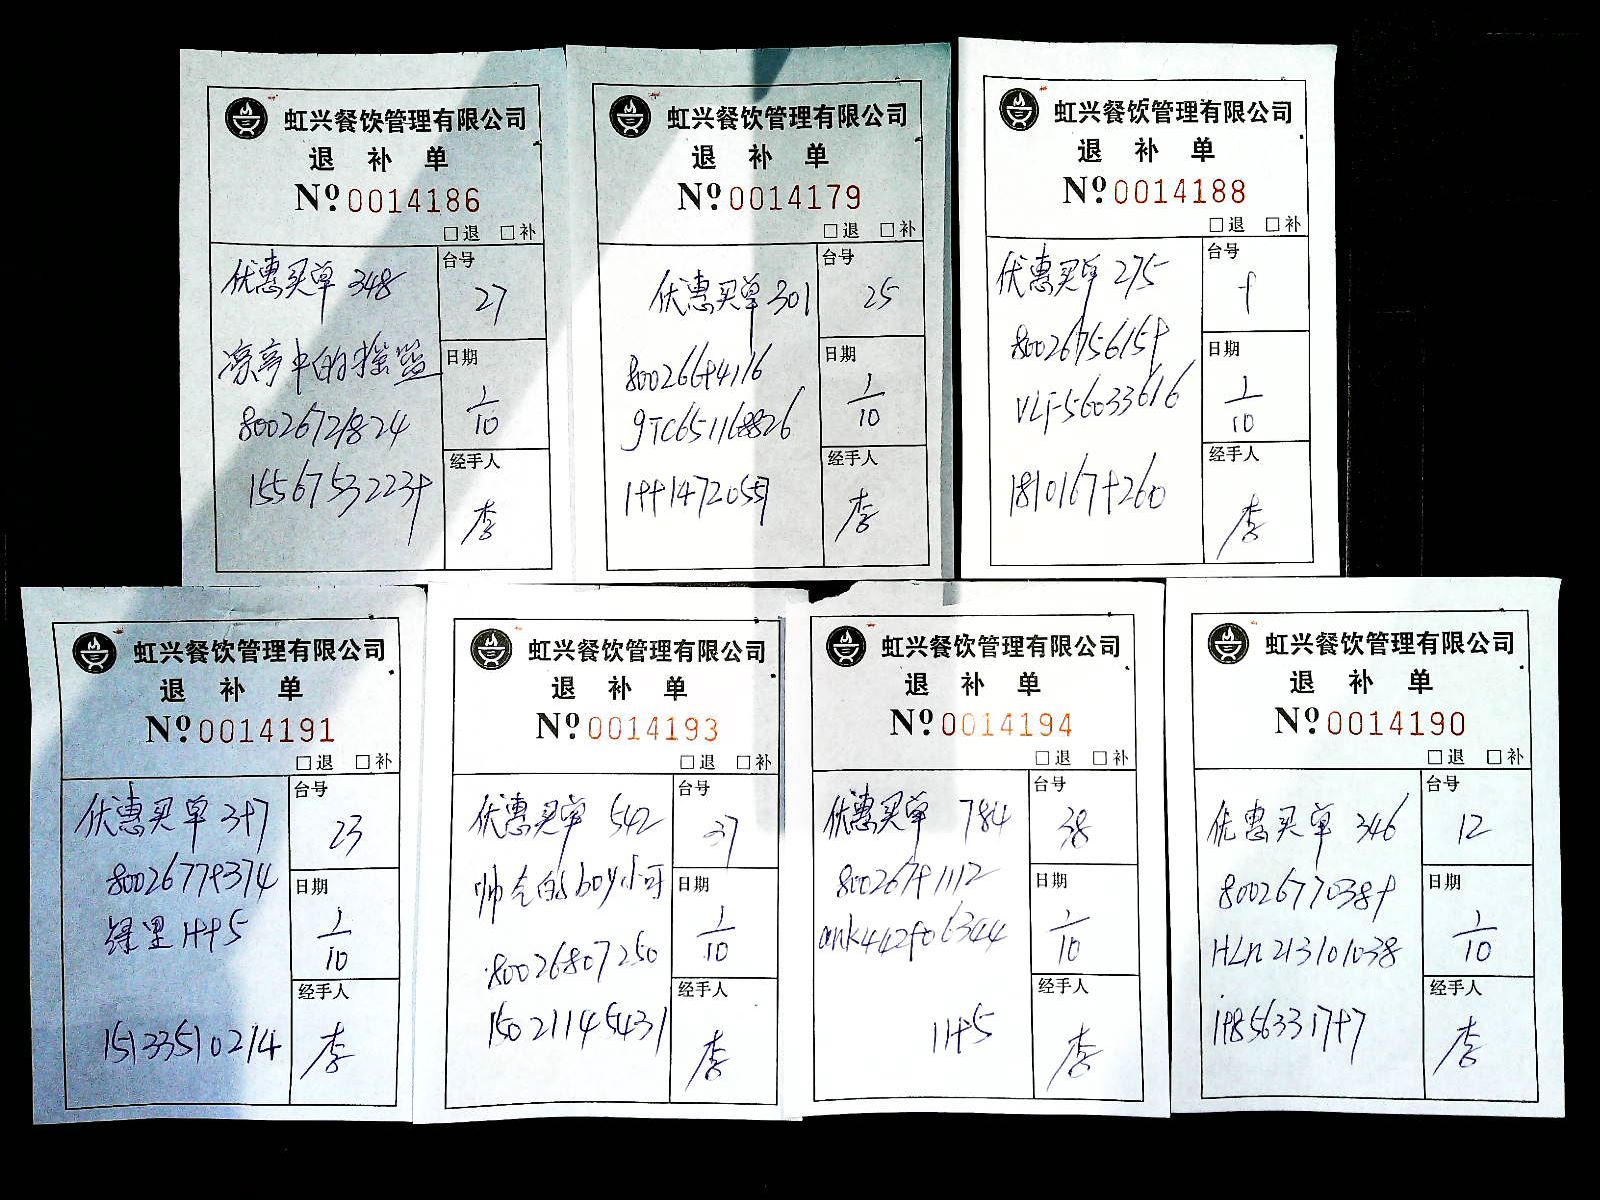 虹兴餐饮管理有限公司
退 补 单
Nº 0014186
□退 □补
优惠买单 348
台号
27
凉亭中的摇篮
日期
1/10
80026721824
15567532239
经手人
李
虹兴餐饮管理有限公司
退 补 单
Nº 0014179
□退 □补
优惠买单 301
台号
25
80026694116
日期
1/10
gTC651168826
经手人
李
虹兴餐饮管理有限公司
退 补 单
Nº 0014188
□退 □补
优惠买单 275
台号
9
80026756159
日期
1/10
VLF56033616
18101679260
经手人
李
虹兴餐饮管理有限公司
退 补 单
Nº 0014191
□退 □补
优惠买单 397
台号
23
80026779374
日期
1/10
1995
15133510214
经手人
李
虹兴餐饮管理有限公司
退 补 单
Nº 0014193
□退 □补
优惠买单 542
台号
37
帅气的boy小可
日期
1/10
80026807250
15021145431
经手人
李
虹兴餐饮管理有限公司
退 补 单
Nº 0014194
□退 □补
优惠买单 784
台号
38
80026791112
日期
1/10
ank442906344
1995
经手人
李
虹兴餐饮管理有限公司
退 补 单
Nº 0014190
□退 □补
优惠买单 346
台号
12
80026770389
日期
1/10
HLn213101038
19856331797
经手人
李